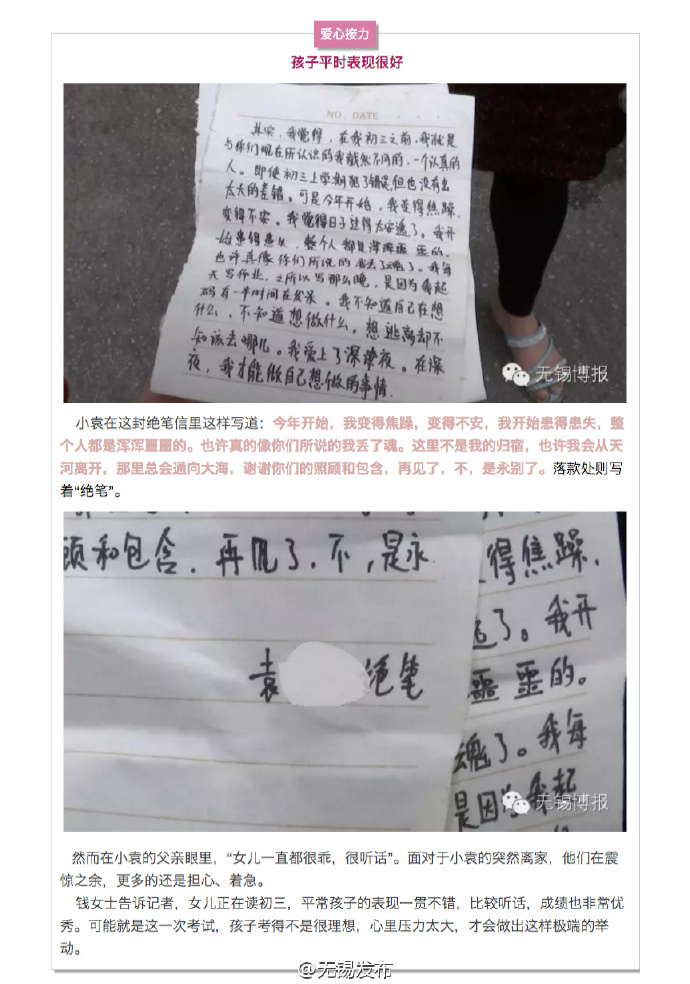 爱心接力
孩子平时表现很好
NO. DATE
其实，我觉得，在我初三之前，我就是
与你们现在所认识的我截然不同的，一个认真的
人。即使初三上学期犯了错误，但也没有出
太大的差错。可是今年开始，我变得焦躁，
变得不安。我觉得日子过得太安逸了。我开
始患得患失，整个人都是浑浑噩噩的。
也许真像你们所说的我丢了魂了。我每
天写作业，之所以写那么晚，是因为我起
码有一半时间在发呆。我不知道自己在想
什么，不知道想做什么，想逃离却不
知该去哪儿。我爱上了深夜。在深
夜，我才能做自己想做的事情.
无锡博报
小袁在这封绝笔信里这样写道：今年开始，我变得焦躁，变得不安，我开始患得患失，整
个人都是浑浑噩噩的。也许真的像你们所说的我丢了魂。这里不是我的归宿，也许我会从天
河离开，那里总会通向大海，谢谢你们的照顾和包含，再见了，不，是永别了。落款处则写
着“绝笔”。
顾和包含，再见了，不，是永
袁 绝笔
得焦躁，
了。我开
噩噩的。
魂了。我每
是因为我起
无锡博报
然而在小袁的父亲眼里，“女儿一直都很乖，很听话”。面对于小袁的突然离家，他们在震
惊之余，更多的还是担心、着急。
钱女士告诉记者，女儿正在读初三，平常孩子的表现一贯不错，比较听话，成绩也非常优
秀。可能就是这一次考试，孩子考得不是很理想，心里压力太大，才会做出这样极端的举
动。
@无锡发布